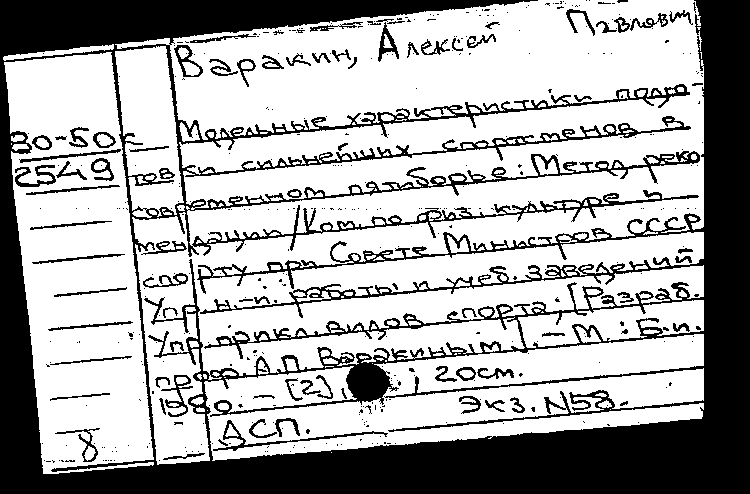 Варакин, Алексей Павлович
80-50к
2549
Модельные характеристики подго-
товки сильнейших спортсменов в
современном пятиборье: Метод. реко-
мендации / Ком. по физ. культуре и
спорту при Совете Министров СССР.
Упр. н.-и. работы и учеб. заведений.
Упр. прикл. видов спорта; [Разраб.
проф. А.П. Варакиным]. - М.: Б.и.
1980. - [2], ; 20см.
Экз. N58.
ДСП.
8